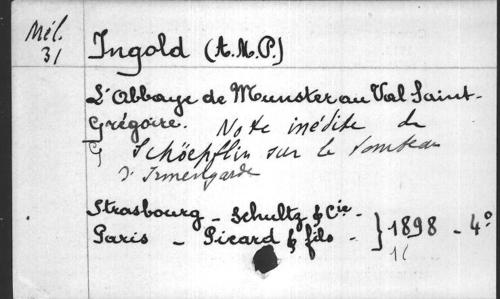 Mél.
31
Ingold (A.M.P.)
L'Abbaye de Munster au Val Saint-
Grégoire. Note inédite de
Schöepflin sur le tombeau
d'Irmengarde
Strasbourg - Schultz & Cie -
Paris - Picard & fils - } 1898 - 4°